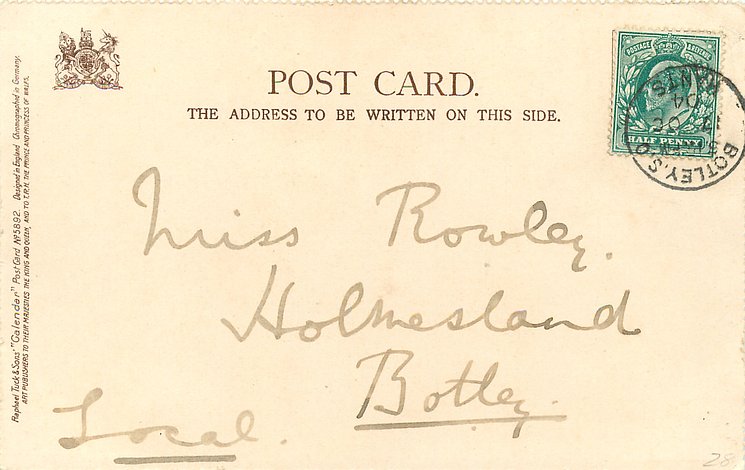 POST CARD.
THE ADDRESS TO BE WRITTEN ON THIS SIDE.
POSTAGE REVENUE
HALF PENNY
BOTLEY.S.O
HANTS
OC
04
Miss Rowley.
Holmesland
Botley.
Local.
Raphael Tuck & Sons' "Calendar" Post Card Nº 5892. Designed in England Chromographed in Germany.
ART PUBLISHERS TO THEIR MAJESTIES THE KING AND QUEEN, AND TO T.R.H. THE PRINCE AND PRINCESS OF WALES.
28